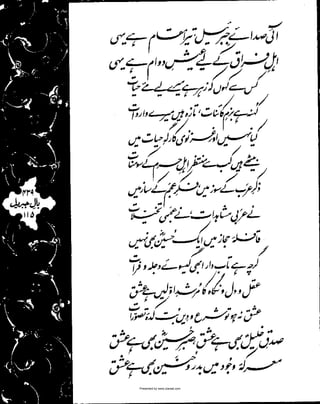 آئی صدائے جبرئیل تیرا مقام ہے یہی
اہلِ فراق کے لیے عیشِ دوام ہے یہی
کس سے کہوں کہ زہر ہے میرے لیے مئے حیات
کہنہ ہے بزمِ کائنات، تازہ ہیں میرے واردات
کیا نہیں اور غزنوی کارگہِ حیات میں
بیٹھے ہیں کب سے منتظر اہلِ حرم کے سومنات
ذکرِ عرب کے سوز میں، فکرِ عجم کے ساز میں
نے عربی مشاہدات، نے عجمی تخیلات
قافلۂ حجاز میں ایک حسینؓ بھی نہیں
گرچہ ہے تاب دار ابھی گیسوئے دجلہ و فرات
عقل و دل و نگاہ کا مرشدِ اولیں ہے عشق
عشق نہ ہو تو شرع و دیں بتکدۂ تصورات
صدقِ خلیلؑ بھی ہے عشق، صبرِ حسینؓ بھی ہے عشق
معرکۂ وجود میں بدر و حنین بھی ہے عشق
۲۳۹
بالِ جبریل
۱۱۵
Presented by www.ziaraat.com